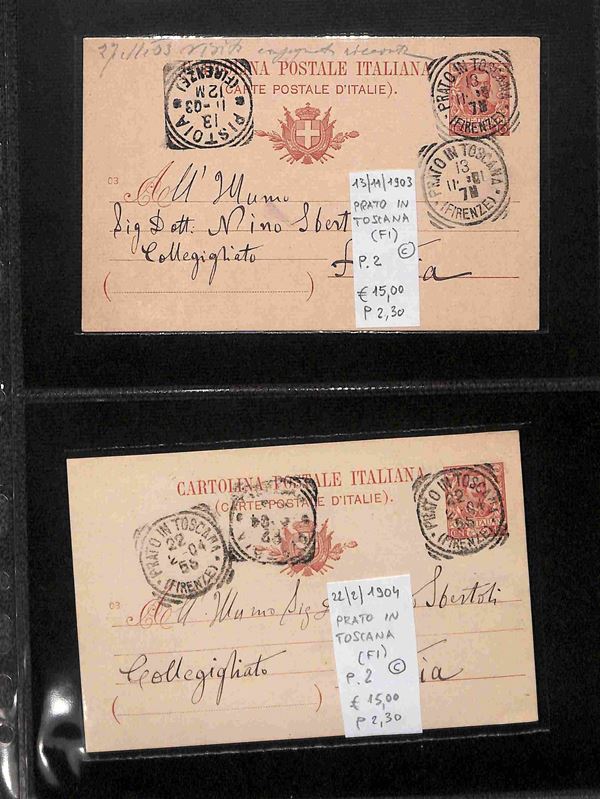 27 11 03
NA POSTALE ITALIANA
(CARTE POSTALE D'ITALIE).
PISTOIA
(FIRENZE)
13
11-03
12M
PRATO IN TOSCANA
(FIRENZE)
13
11
7M
PRATO IN TOSCANA
(FIRENZE)
13
11
7M
03
All' Illumo
Sig Dott. Nino Sbert
Collegigliato
13/11/1903
PRATO IN
TOSCANA
(FI)
C
P.2
€ 15,00
P 2,30
CARTOLINA POSTALE ITALIANA
(CARTE POSTALE D'ITALIE).
PRATO IN TOSCANA
(FIRENZE)
22
04
PRATO IN TOSCANA
(FIRENZE)
22
04
03
All' Illumo Sig
Sbertoli
Collegigliato
22/2/1904
PRATO IN
TOSCANA
(FI)
C
P.2
€ 15,00
P 2,30